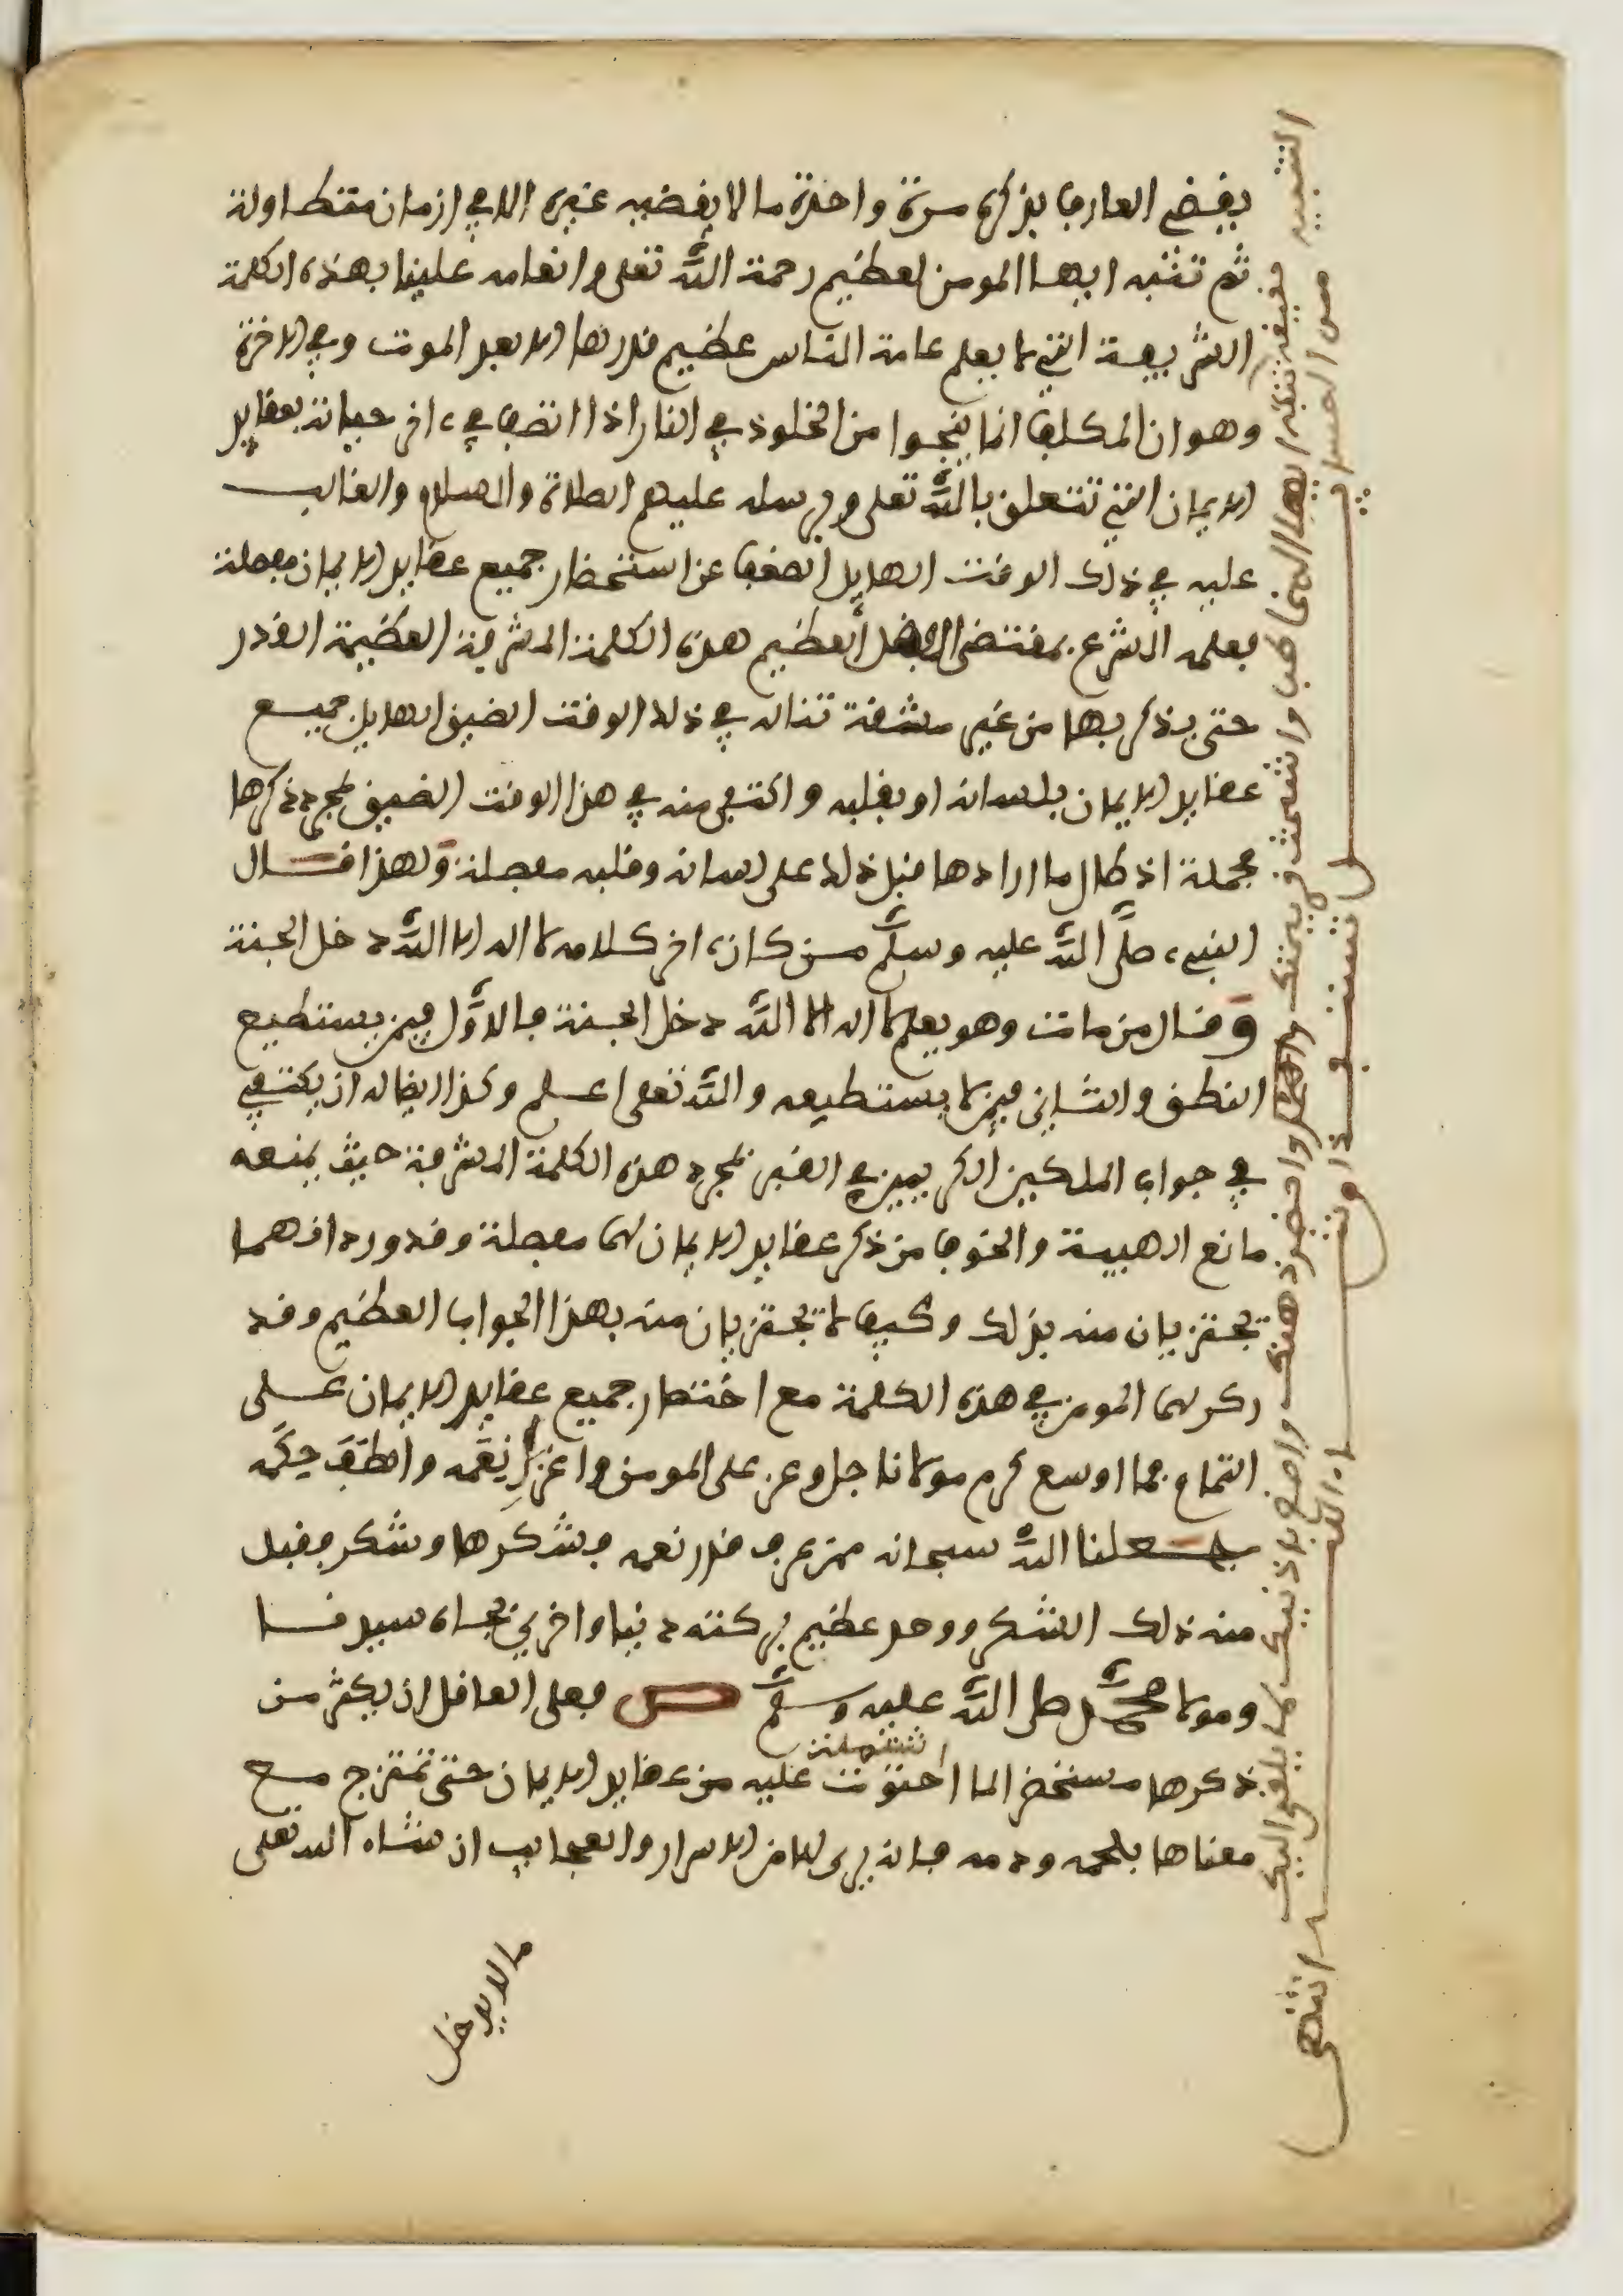 يقضى العارف بذكره مرة واحدة ما لا يقضيه غيره الا في ازمان متطاولة
ثم تنبه ايها المومن لعظيم رحمة الله تعلى وانعامه علينا بهذه الكلمة
الشريفة التي لا يعلم عامة الناس عظيم قدرها الا بعد الموت وفي الاخرة
وهو ان المكلف انما ينجوا من الخلود في النار اذا اتصف في ءاخر حياته بعقايد
الايمان التي تتعلق بالله تعلى وبرسله عليهم الصلاة والسلام والغالب
عليه في ذلك الوقت الهايل الضعف عن استحضار جميع عقايد الايمان مفصلة
فعلمه الشرع بمقتضى الفضل العظيم هذه الكلمة المشرفة العظيمة القدر
حتى يذكر بها من غير مشقة تناله في ذلك الوقت الضيق الهايل جميع
عقايد الايمان بلسانه او بقلبه واكتفى منه في هذا الوقت الضيق بمجرد ذكرها
مجملة اذ طال ما ارادها قبل ذلك على لسانه وقلبه مفصلة ولهذا قال
النبيء صلى الله عليه وسلم من كان ءاخر كلامه لا اله الا الله دخل الجنة
وقال من مات وهو يعلم لا اله الا الله دخل الجنة فالاول فيمن يستطيع
النطق والثاني فيمن لا يستطيعه والله تعلى اعلم وكذا ايضا له ان يكتفي
في جواب الملكين الكريمين في القبر بمجرد هذه الكلمة المشرفة حيث يمنعه
مانع الهيبة والخوف من ذكر عقايد الايمان لهما مفصلة وقد ورد انهما
يجتزيان منه بذلك وكيف لا يجتزيان منه بهذا الجواب العظيم وقد
ذكر لهما المومن في هذه الكلمة مع اختصار جميع عقايد الايمان على
التمام فما اوسع كرم مولانا جل وعز على المومن واغزر نعمه والطف حكمه
جعلنا الله سبحانه ممن عرف قدر نعمه فشكرها وشكر فقبل
منه ذلك الشكر ووجد عظيم بركته دنيا واخرى بجاه سيدنا
ومولانا محمد صلى الله عليه وسلم ص فعلى العاقل ان يكثر من
ذكرها مستحضرا لما احتوت عليه من عقايد الايمان حتى تمتزج مع
اشتملت
معناها بلحمه ودمه فانه يرى لها من الاسرار والعجايب ان شاء الله تعلى
ما لا يدخل